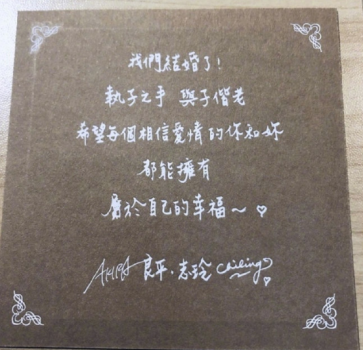 我們結婚了！
執子之手 與子偕老
希望每個相信愛情的你和妳
都能擁有
屬於自己的幸福～♡
AKIRA 良平・志玲 chiling♡